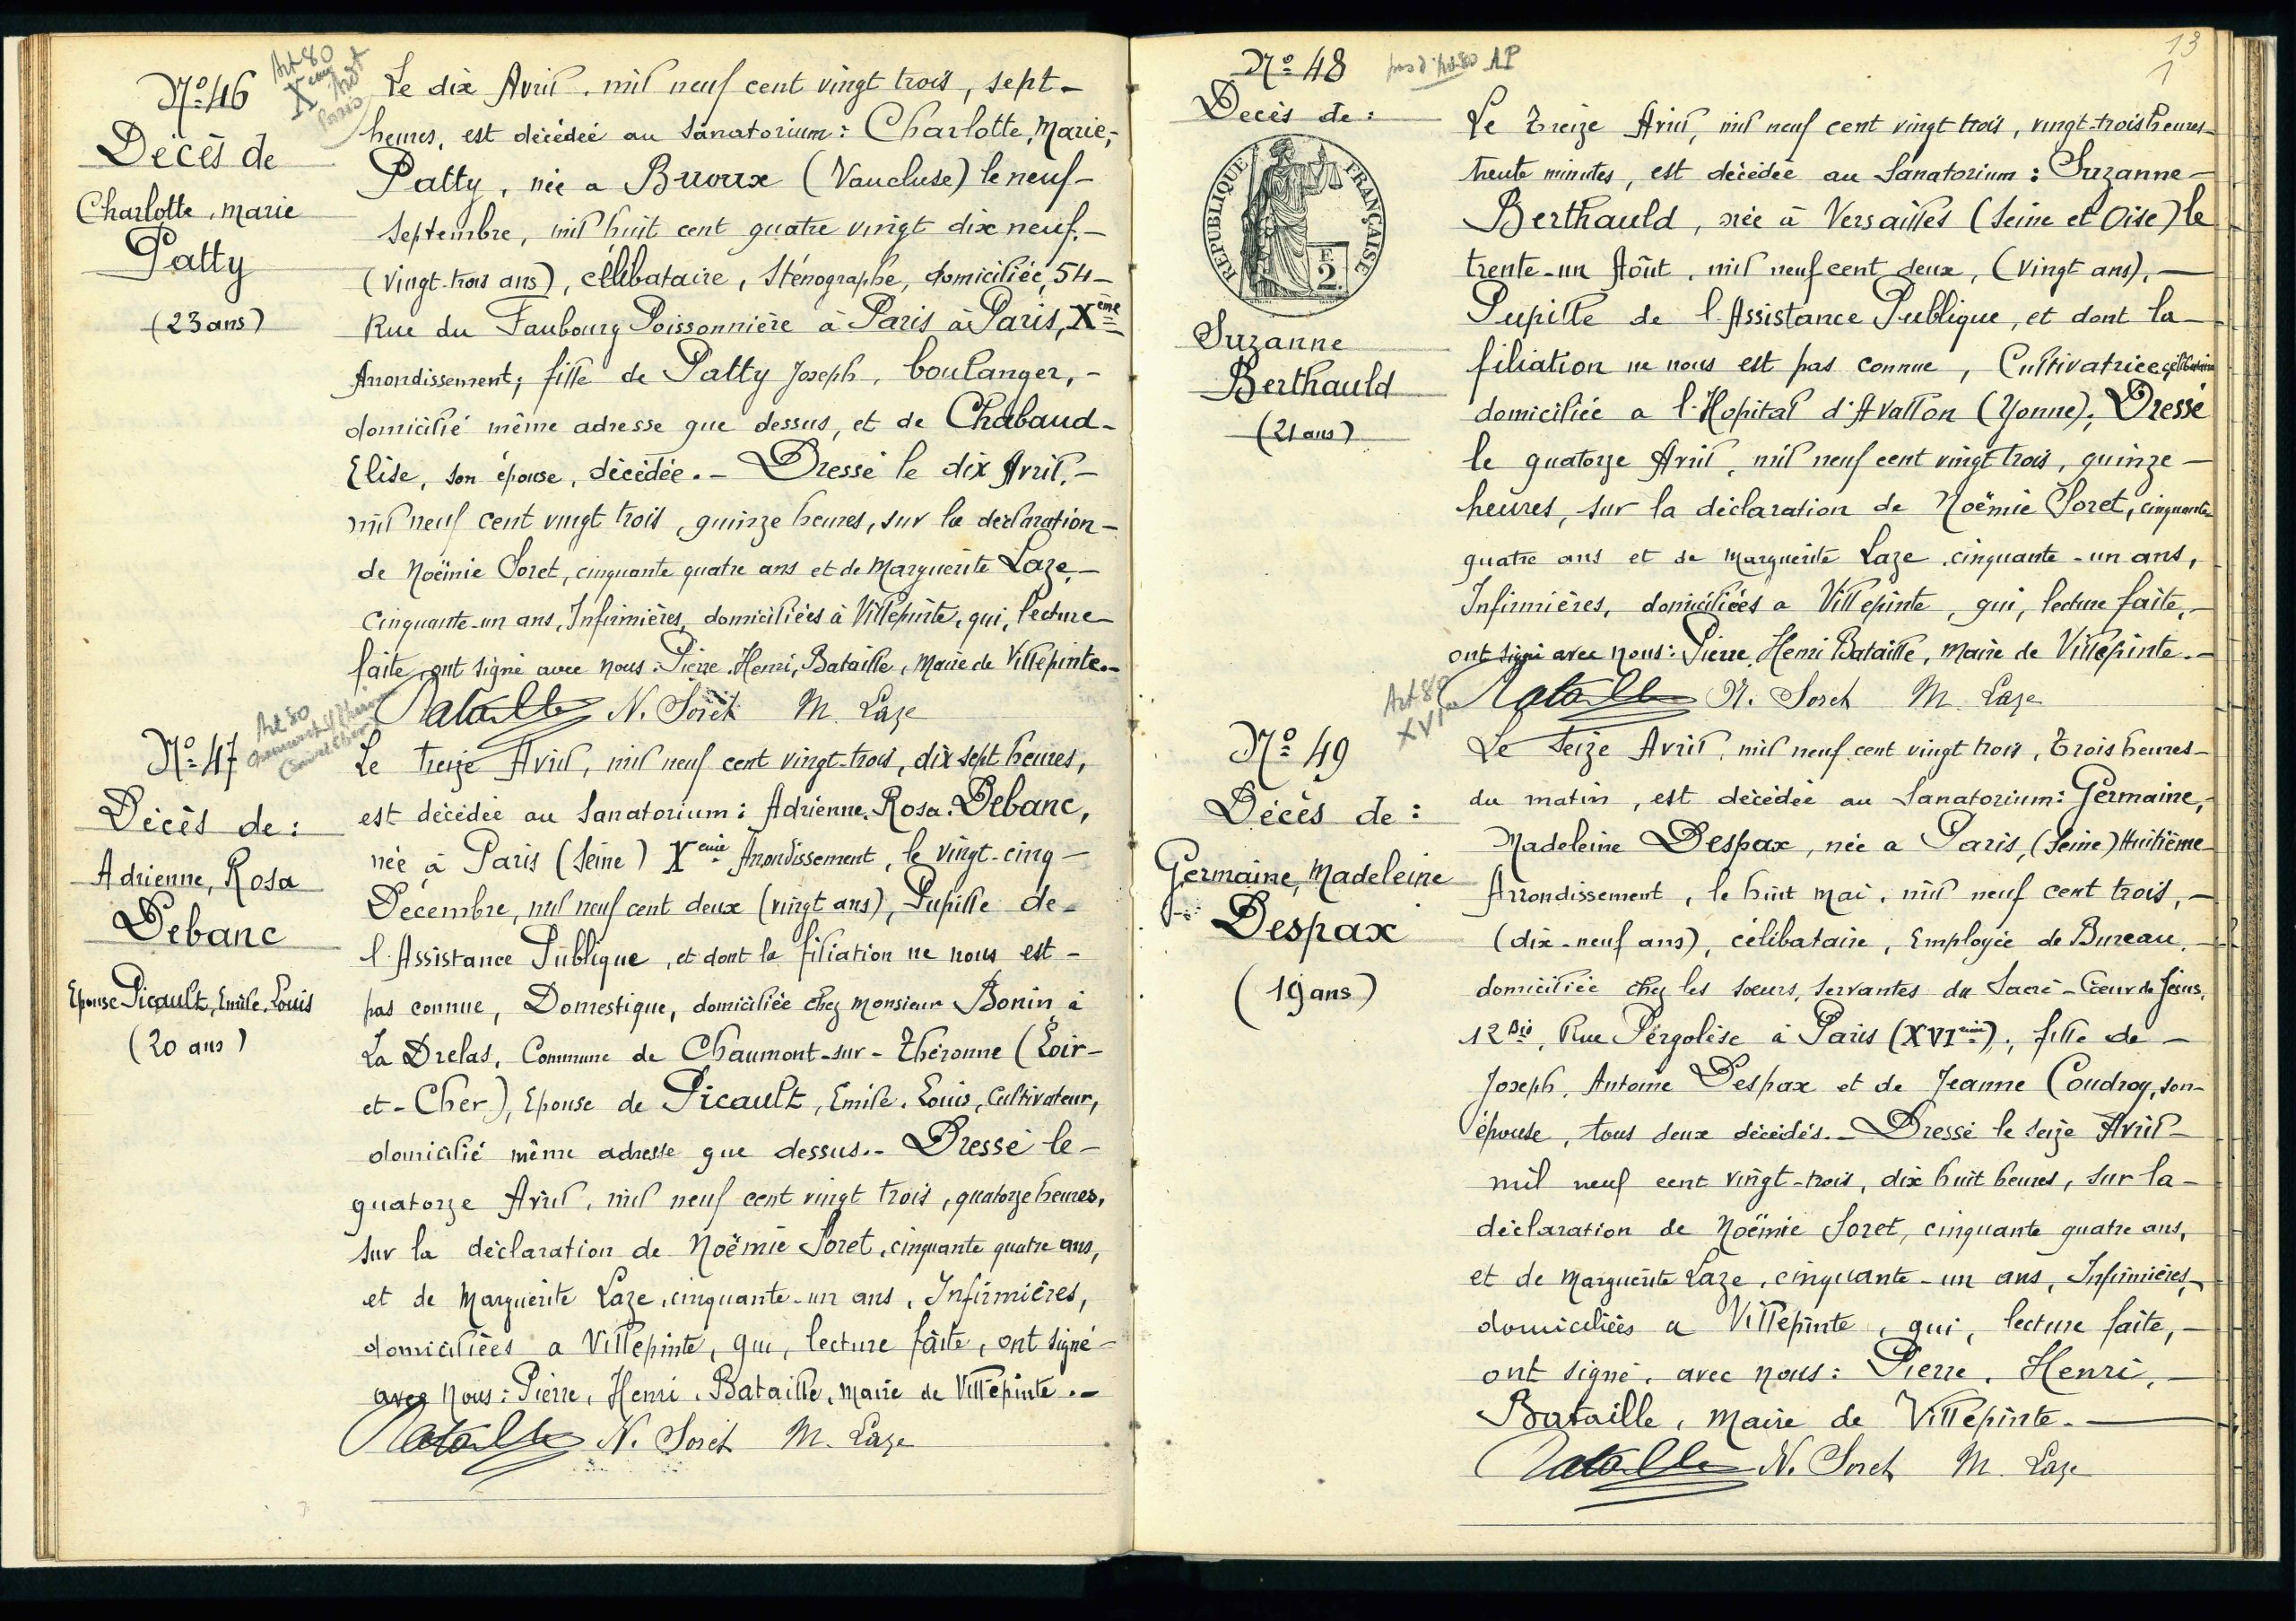 N° 46
Art 80
Xème Arrdt
Paris
Décès de
Charlotte, Marie
Patty
(23 ans)
Le dix Avril, mil neuf cent vingt trois, sept-
heures, est décédée au Sanatorium : Charlotte, Marie,-
Patty, née a Buoux (Vaucluse) le neuf-
Septembre, mil huit cent quatre vingt dix neuf,-
(vingt-trois ans), célibataire, Sténographe, domiciliée, 54-
Rue du Faubourg Poissonnière à Paris à Paris, Xème
Arrondissement, fille de Patty Joseph, boulanger,-
domicilié même adresse que dessus, et de Chabaud-
Elise, son épouse, décédée.- Dressé le dix Avril,-
mil neuf cent vingt trois, quinze heures, sur la déclaration-
de Noëmie Soret, cinquante quatre ans et de Marguerite Laze,-
cinquante-un ans, Infirmières, domiciliées à Villepinte, qui, lecture
faite, ont signé avec nous : Pierre, Henri, Bataille, Maire de Villepinte.-
Bataille N. Soret M. Laze
N° 47
Art 80
Décès de :
Adrienne, Rosa
Debanc
Epouse Picault, Emile, Louis
(20 ans)
Le treize Avril, mil neuf cent vingt-trois, dix sept heures,
est décédée au Sanatorium : Adrienne, Rosa, Debanc,
née à Paris (Seine) Xème Arrondissement, le vingt-cinq-
Décembre, mil neuf cent deux (vingt ans), Pupille de-
l'Assistance Publique, et dont la filiation ne nous est-
pas connue, Domestique, domiciliée chez Monsieur Bonin à
La Drelas, Commune de Chaumont-sur-Théronne (Loir-
et-Cher), Epouse de Picault, Emile, Louis, Cultivateur,
domicilié même adresse que dessus.- Dressé le-
quatorze Avril, mil neuf cent vingt trois, quatorze heures,
sur la déclaration de Noëmie Soret, cinquante quatre ans,
et de Marguerite Laze, cinquante-un ans, Infirmières,
domiciliées a Villepinte, qui, lecture faite, ont signé-
avec nous : Pierre, Henri, Bataille, Maire de Villepinte.-
Bataille N. Soret M. Laze
13
1
N° 48
pas d'Art 80 AP
Décès de :
REPUBLIQUE FRANÇAISE
2 F
Suzanne
Berthauld
(21 ans)
Le Treize Avril, mil neuf cent vingt trois, vingt-trois heures-
trente minutes, est décédée au Sanatorium : Suzanne-
Berthauld, née à Versailles (Seine et Oise) le
trente-un Août, mil neuf cent deux, (vingt ans),-
Pupille de l'Assistance Publique, et dont la-
filiation ne nous est pas connue, Cultivatrice, célibataire
domiciliée a l'Hopital d'Avallon (Yonne), Dressé
le quatorze Avril, mil neuf cent vingt trois, quinze-
heures, sur la déclaration de Noëmie Soret, cinquante-
quatre ans et de Marguerite Laze, cinquante-un ans,
Infirmières, domiciliées a Villepinte, qui, lecture faite,-
ont signé avec nous : Pierre, Henri Bataille, Maire de Villepinte.-
Bataille N. Soret M. Laze
N° 49
Art 80
XVIe
Décès de :
Germaine, Madeleine
Despax
(19 ans)
Le Seize Avril, mil neuf cent vingt trois, Trois heures-
du matin, est décédée au Sanatorium : Germaine,-
Madeleine Despax, née a Paris, (Seine) Huitième-
Arrondissement, le huit Mai, mil neuf cent trois,-
(dix-neuf ans), célibataire, Employée de Bureau,-
domiciliée chez les soeurs, Servantes du Sacré-Coeur de Jésus,
12 Bis, Rue Pergolèse à Paris (XVIème), fille de-
Joseph, Antoine Despax et de Jeanne Coudroy, son-
épouse, tous deux décédés.- Dressé le seize Avril-
mil neuf cent vingt-trois, dix huit heures, sur la-
déclaration de Noëmie Soret, cinquante quatre ans,
et de Marguerite Laze, cinquante-un ans, Infirmières,-
domiciliées a Villepinte, qui, lecture faite,-
ont signé, avec nous : Pierre, Henri,-
Bataille, Maire de Villepinte.-
Bataille N. Soret M. Laze